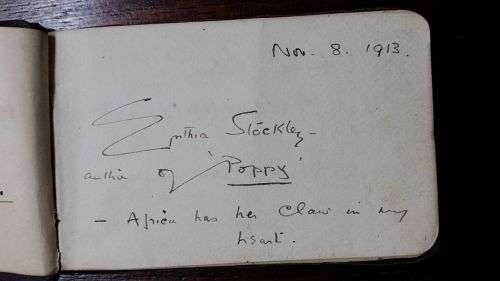 Nov. 8. 1913.
Cynthia Stockley –
author of 'Poppy'
– Africa has her Claw in my
heart.